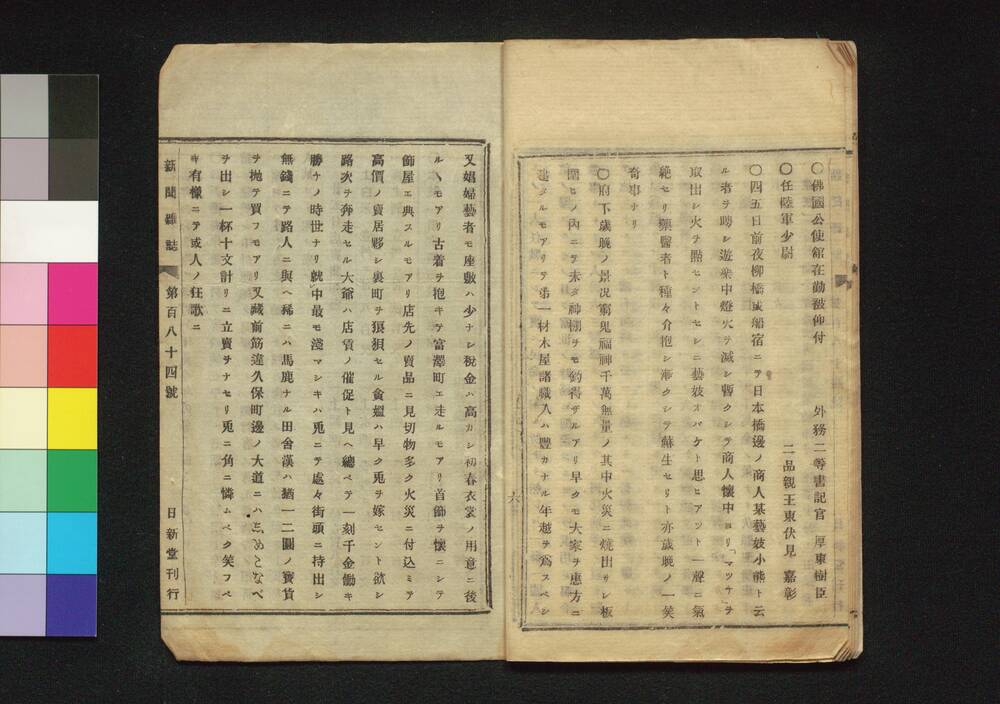 〇佛國公使館在勤被仰付　外務二等書記官　厚東樹臣
〇任陸軍少尉　二品親王東伏見　嘉彰
〇四五日前夜柳橋或船宿ニテ日本橋邊ノ商人某藝妓小熊ト云
ル者ヲ聘シ遊樂中燈火ヲ滅シ暫クシテ商人懷中ヨリ「マツチ」ヲ
取出シ火ヲ點セントセシニ藝妓オバケト思ヒアツト一聲ニ氣
絶セリ藥醫者ト種々介抱シ漸クシテ蘇生セリト亦歳晩ノ一笑
奇事ナリ
〇府下歳晩ノ景况窮鬼福神千萬無量ノ其中火災ニ燒出サレ板
圍ヒノ内ニテ未タ神棚チモ釣得ザルアリ早クモ大家ヲ惠方ニ
造タルモアリテ第一材木屋諸職人ハ豐カナル年越ヲ爲スベシ
六
又娼婦藝者モ座敷ハ少ナシ税金ハ高カシ初春衣裳ノ用意ニ後
ルヽモアリ古着ヲ抱キテ富澤町エ走ルモアリ首飾ヲ懷ニシテ
飾屋エ典スルモアリ店先ノ賣品ニ見切物多ク火災ニ付込ミテ
高價ノ賣居夥シ裏町ヲ狼狽セル貪媼ハ早ク兎ヲ嫁セント欲シ
路次ヲ奔走セル大爺ハ店賃ノ催促ト見ヘ總ベテ一刻千金働キ
勝チノ時世ナリ就中最モ淺マシキハ兎ニテ處々街頭ニ持出シ
無錢ニテ路人ニ與ヘ稀ニハ馬鹿ナル田舍漢ハ猶一二圓ノ寶貨
ヲ抛テ買フモアリ又藏前筋違久保町邊ノ大道ニハ
ヲ出シ一杯十文計リニ立賣ヲナセリ兎ニ角ニ憐ムベク笑フベ
キ有樣ニテ或人ノ狂歌ニ
新聞雜誌　第百八十四號　日新堂刊行